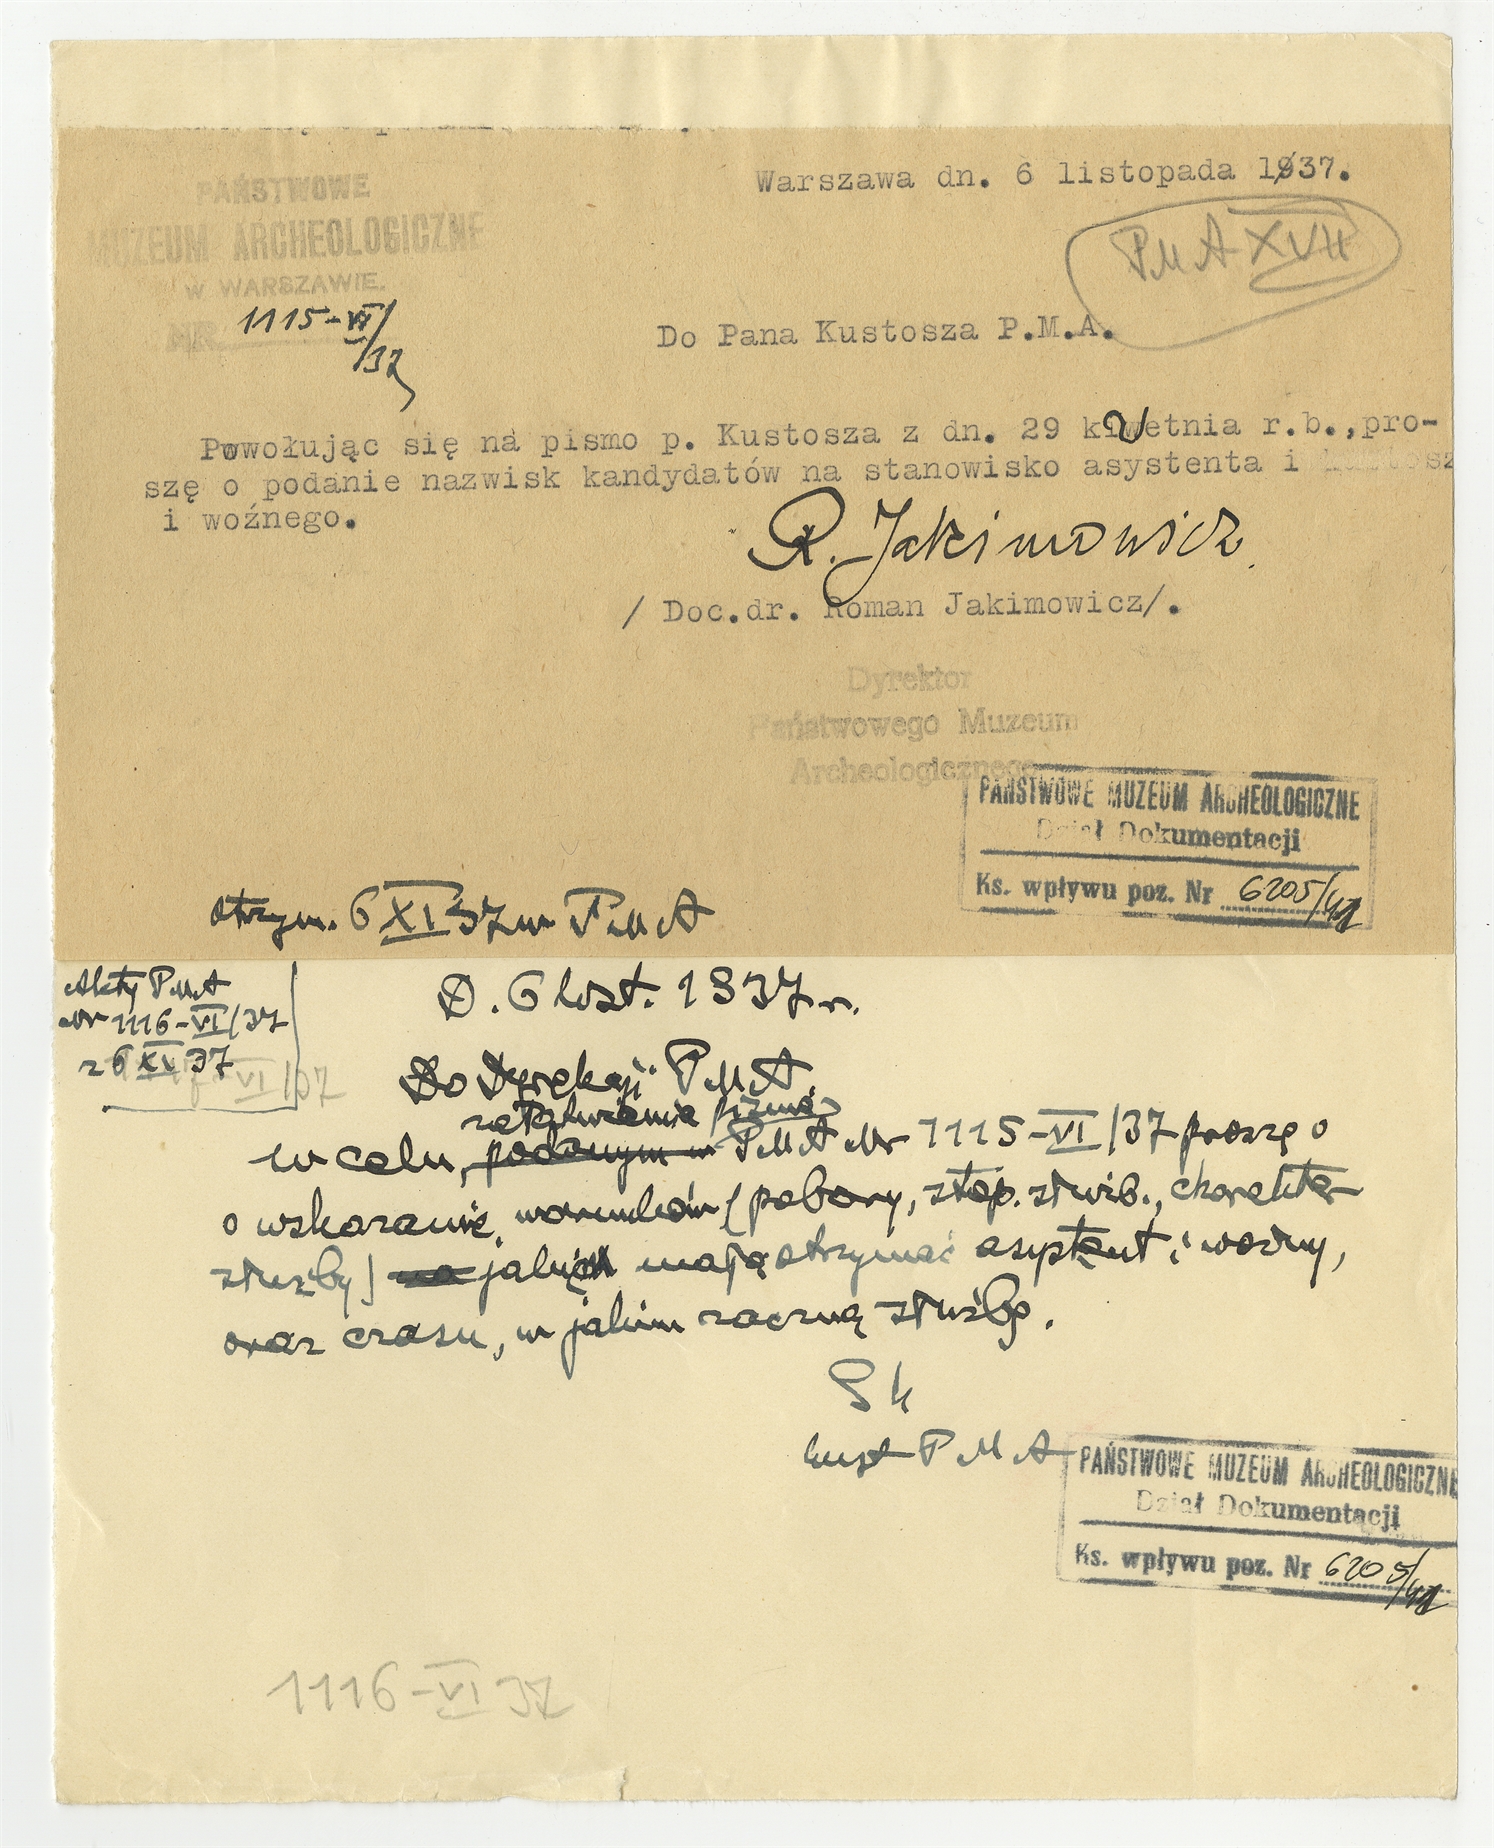 Warszawa dn. 6 listopada 1937.
PAŃSTWOWE
MUZEUM ARCHEOLOGICZNE
W WARSZAWIE.
NR 1115-VI/37
PMA XVII
Do Pana Kustosza P.M.A.
Powołując się na pismo p. Kustosza z dn. 29 kwietnia r.b.,pro-
szę o podanie nazwisk kandydatów na stanowisko asystenta i
i woźnego.
R. Jakimowicz
/ Doc.dr. Roman Jakimowicz/.
Dyrektor
Państwowego Muzeum
Archeologicznego
PAŃSTWOWE MUZEUM ARCHEOLOGICZNE
Dział Dokumentacji
Ks. wpływu poz. Nr 6205/41
otrzym. 6 XI 37 w PMA
Akty PMA
Nr 1116-VI/37
z 6 XI 37
VI/37
D. 6 list. 1937 r.
Do Dyrekcji PMA.
załatwienia pisma
w celu, podanym w PMA Nr 1115-VI/37 proszę o
o wskazanie, warunków (pobory, stop. służb., charakter
służby) na jakich mają otrzymać asystent i woźny,
oraz czasu, w jakim zaczną służbę.
Kust PMA
PAŃSTWOWE MUZEUM ARCHEOLOGICZNE
Dział Dokumentacji
Ks. wpływu poz. Nr 6205/41
1116-VI 37